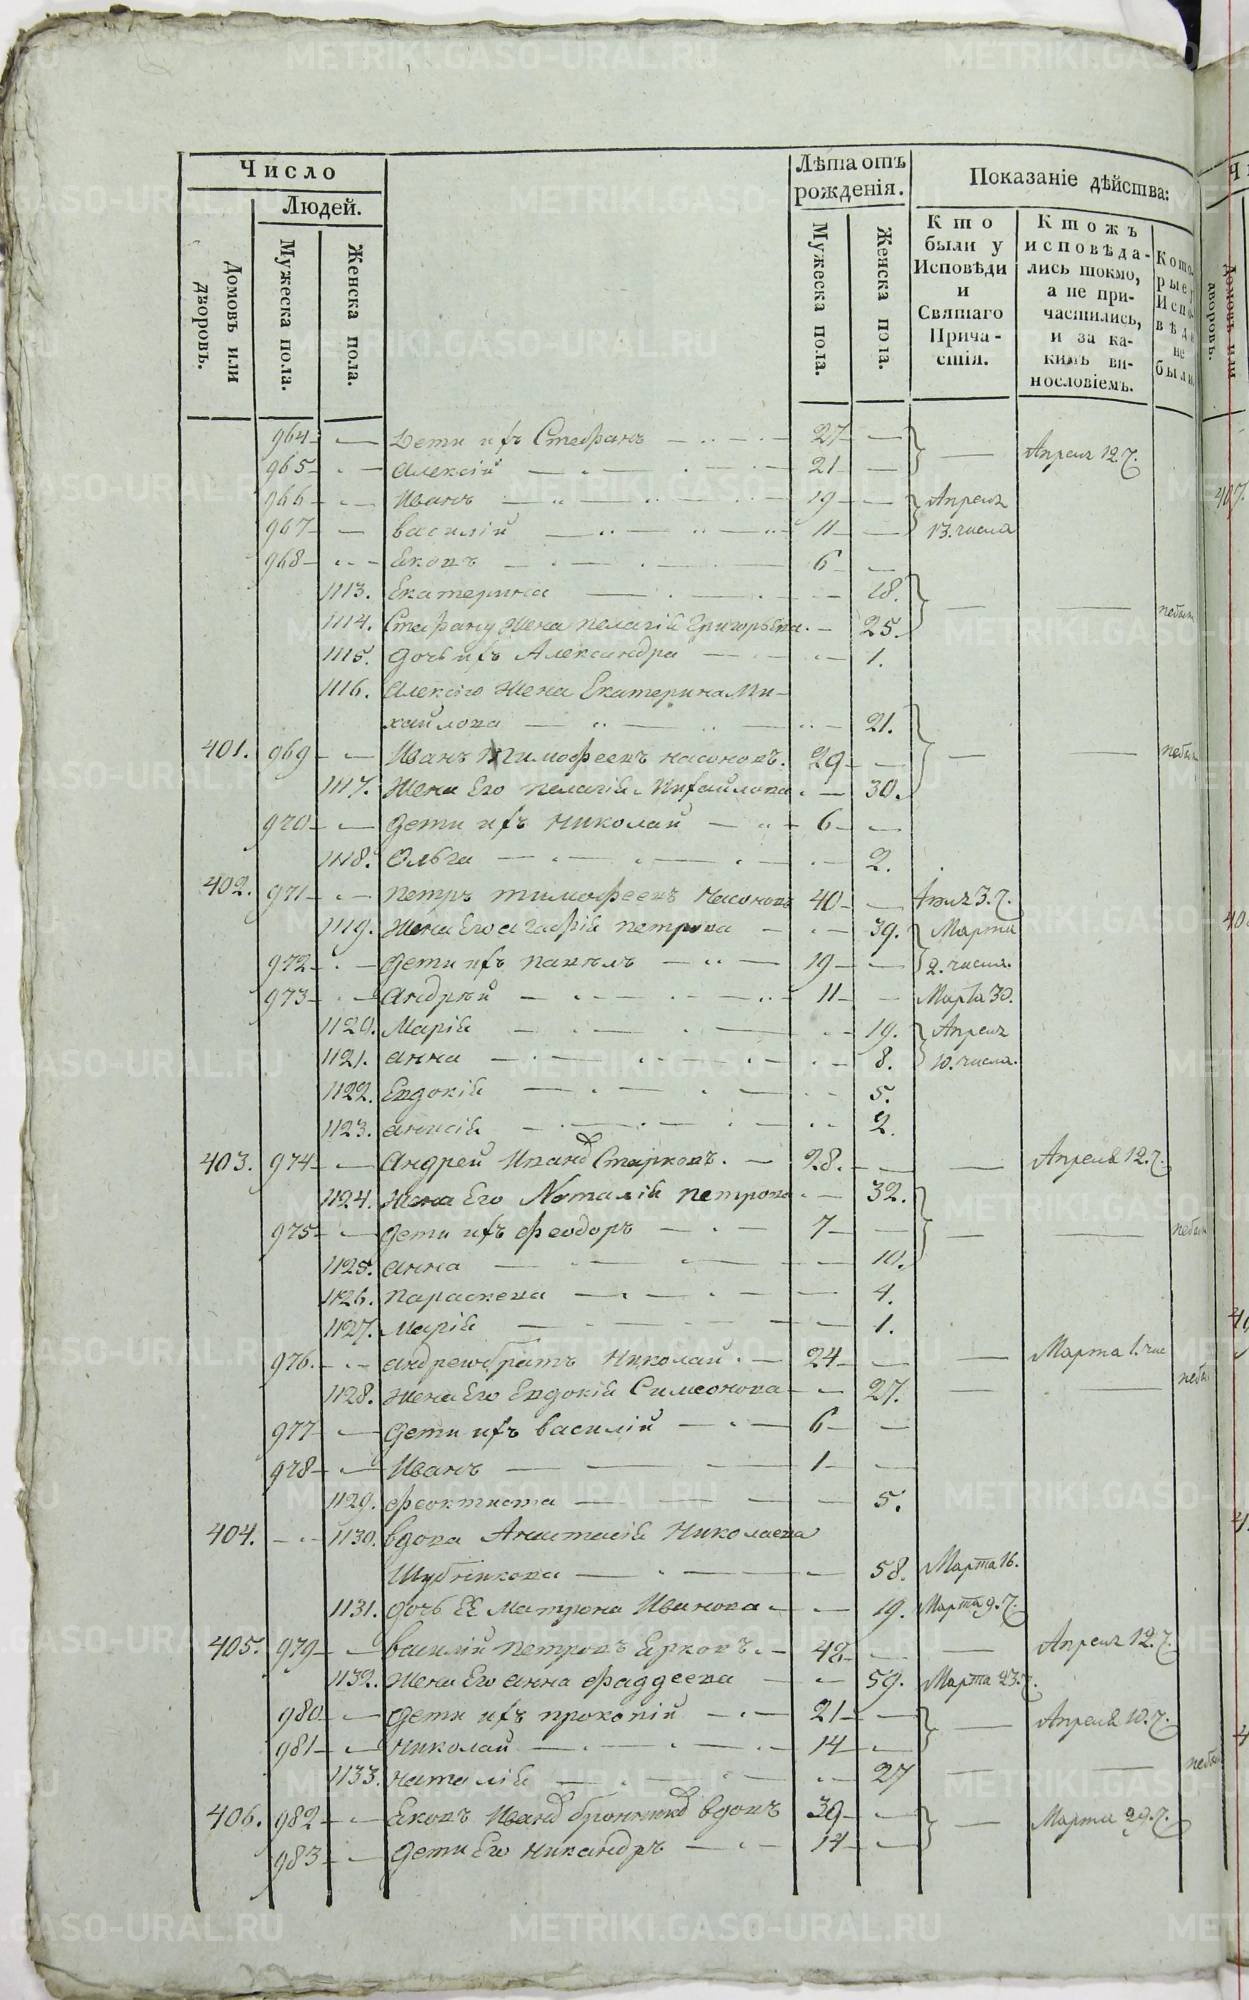 Число
Людей.
Домовъ или дворовъ.
Мужеска пола.
Женска пола.
Лѣта отъ рожденія.
Мужеска пола.
Женска пола.
Показаніе дѣйства:
Кто были у Исповѣди и Святаго Прича-стія.
Ктожъ исповѣда-лись токмо, а не при-частились, и за ка-кимъ ви-нословіемъ.
Кото-рые у Испо-вѣди не были
964 — Дети ихъ Стефанъ 27 — Апреля 12.
965 — Алексій 21 —
966 — Иванъ 19 — Апреля
967 — василій 11 — 13. числа
968 — Екопъ 6 —
1113. Екатерина — 18.
1114. Стефану жена пелагія Григорьева. — 25. — — небыли
1115. дочь ихъ Александра — 1.
1116. Алексію жена Екатерина Ми-
хайлова — 21.
401. 969 — Иванъ Тимофеевъ насоновъ. 29 — — — небыли
1117. Жена Его пелагія Михайлова — 30.
970 — дети ихъ николай — 6 —
1118. Ольга — 2.
402. 971 — петръ тимофеевъ насоновъ 40 — 3.
1119. Жена Его агафія петрова — 39. Марта
972 — дети ихъ павелъ — 19 — 2. числа.
973 — андрей — 11 — Марта 30.
1120. Марія — 19. Апреля
1121. анна — 8. 10. числа.
1122. Евдокія — 5.
1123. анисія — 2.
403. 974 — андрей Иванов Старковъ. — 28. — — Апреля 12.
1124. жена Его Наталія петрова — 32.
975 — дети ихъ феодоръ — 7 — — — небыли
1125. анна — 10.
1126. параскева — 4.
1127. Марія — 1.
976. — андреювбратъ николай. — 24 — — Марта 1. чис
1128. жена Его Евдокія Симеонова — 27. — — небыли
977 — дети ихъ василій — 6 —
978 — Иванъ — 1 —
1129. феоктиста — 5.
404. — 1130. вдова Анастасія Николаева
Шубникова — 58. Марта 16.
1131. дочь ЕЕ Матрона Иванова — 19. Марта 9.
405. 979 — василій петровъ Ерковъ. — 48 — — Апреля 12.
1132. жена Его анна фаддеева — 59. Марта 23.
980 — дети ихъ прокопій — 21 — — Апреля 10.
981 — николай — 14 —
1133. наталія — 27 — — небыли
406. 982 — Ековъ Иванов вдовъ 39 — — Марта 29.
983 — дети Его никандръ — 14 —
Чи
Домовъ или дворовъ.
407.
METRIKI.GASO-URAL.RU